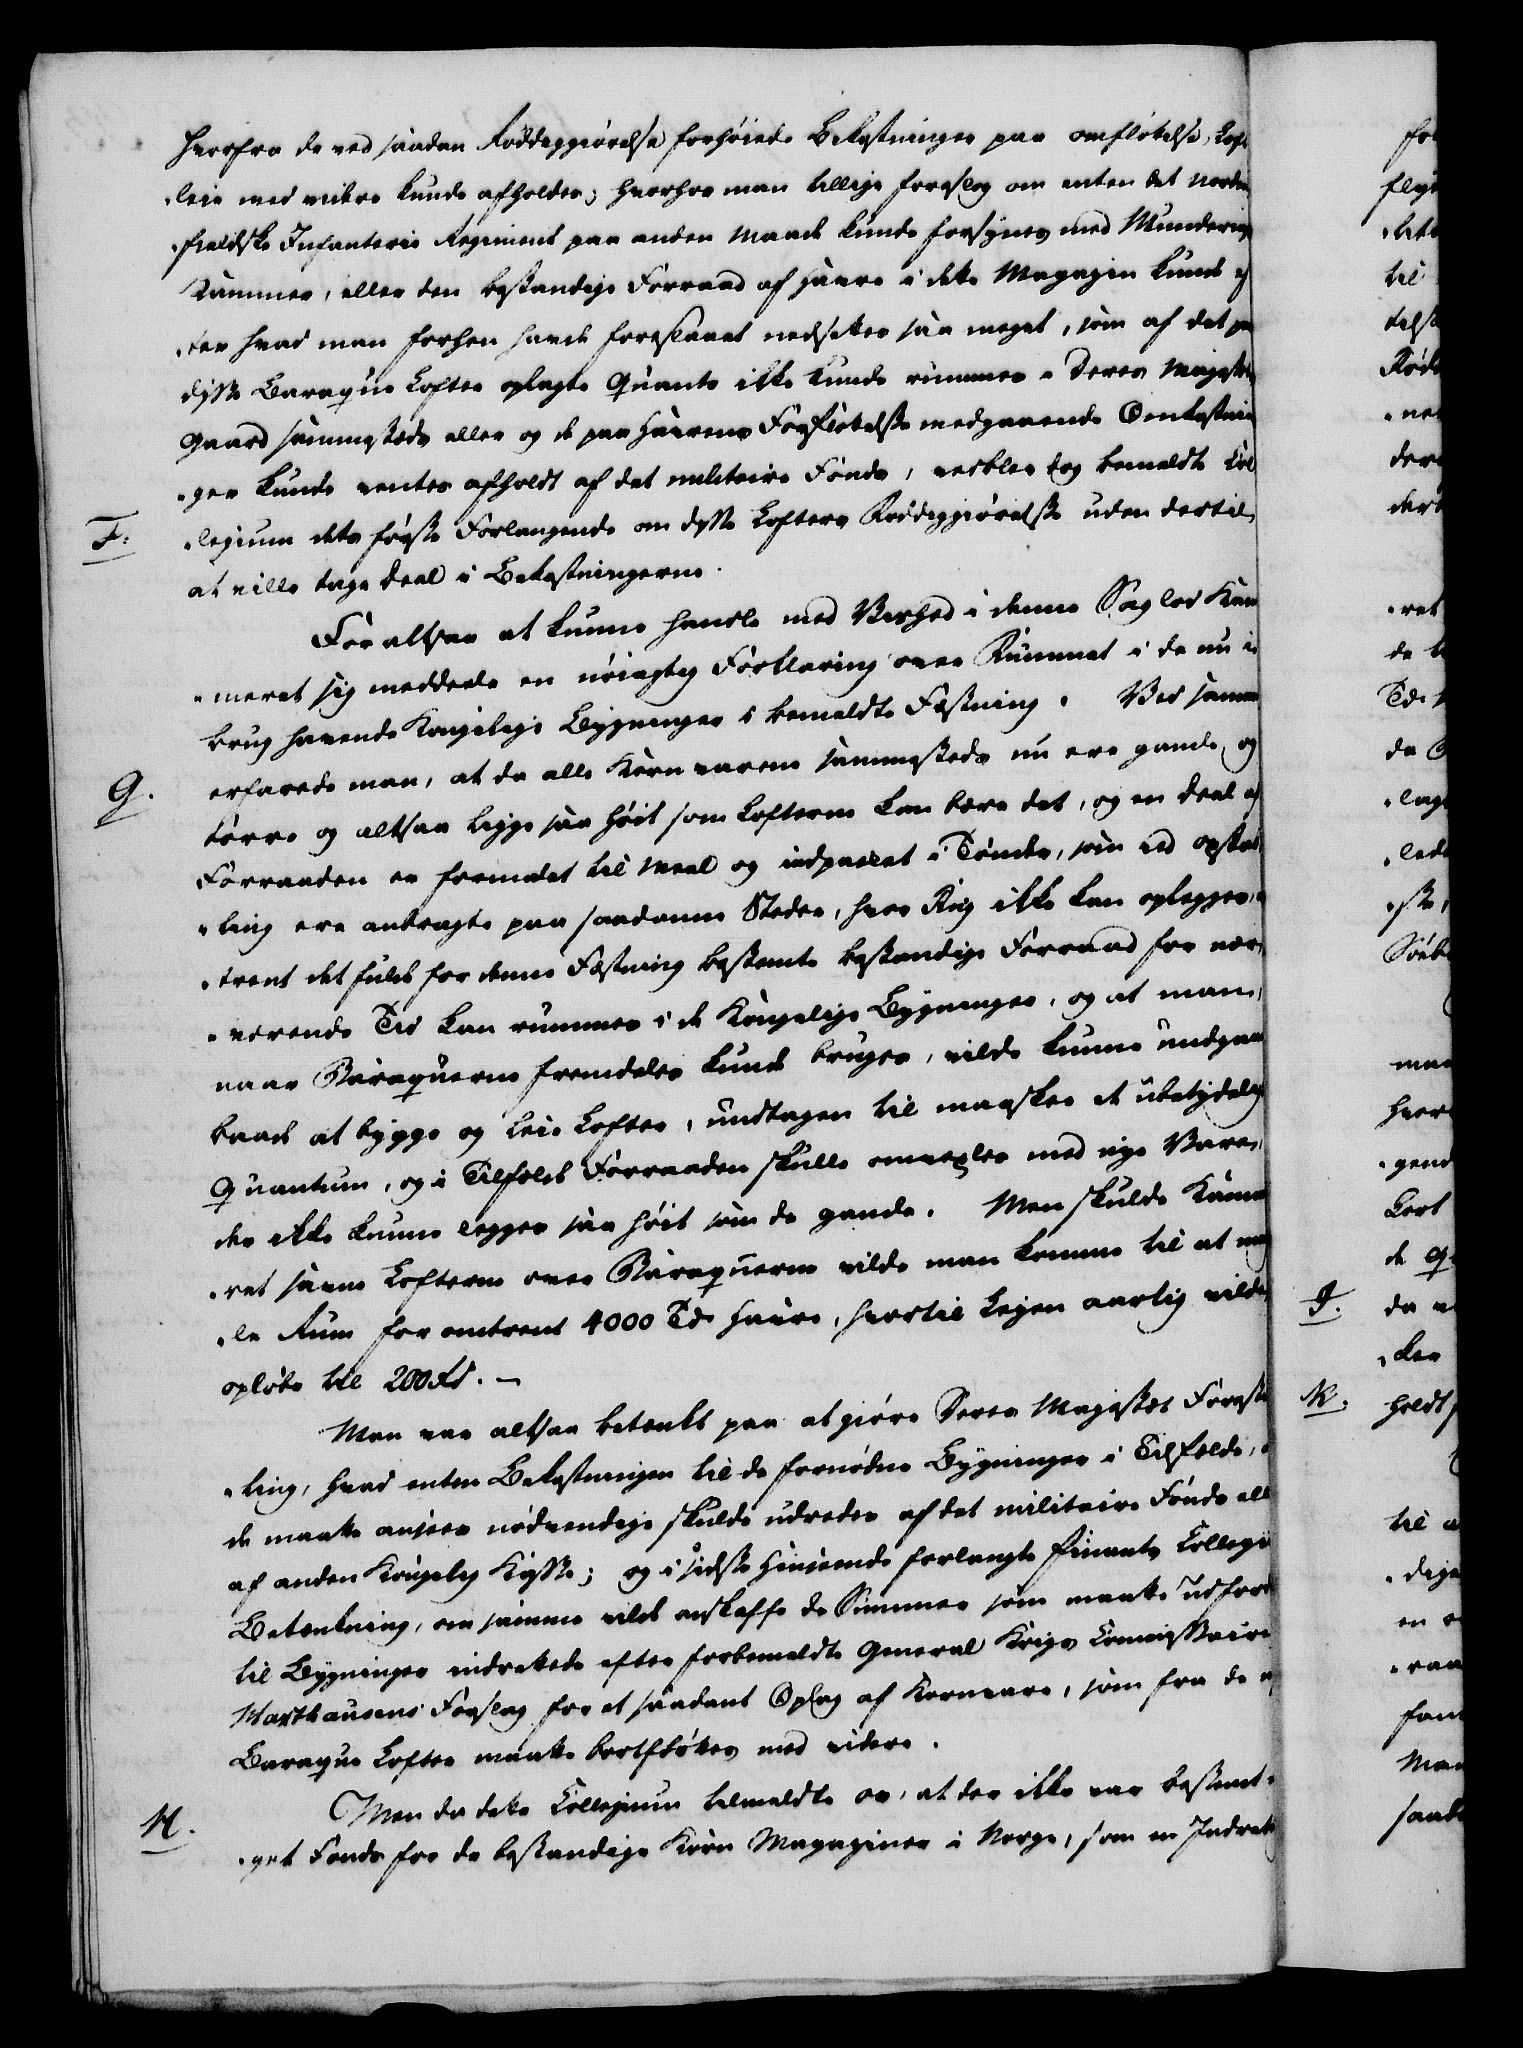 hvorfra de ved saadan Ryddeggiørelse forhøiede Bekostninger paa omflötelse, Loft
„leie med videre kunde afholdes; hvorhos man tillige foreslog om enten det norden„
„fieldske Infanterie Regiment paa anden Maade kunde forsynes med Munderings
Kammer, eller den bestandige Forraad af Havre i dette Magazin kunde ef
„ter hvad man forhen havde foreslaaet nedsettes saa meget, som af det paa
disse Baraque Lofter oplagte Quanto ikke kunde rummes i Deres Majestets
Gaard sammesteds eller og de paa Havrens Forflötelse medgaaende Omkostnin
„ger kunde ventes afholdt af det militaire Fonds, vedblev dog bemeldte Col
F: „legium dets første Forlangende om disse Lofters Ryddeggiörelse uden dertil
at ville tage Deel i Bekostningerne.
For altsaa at kunne handle med Vished i denne Sag lod Kam
„meret sig meddeele en nöiagtig Forklaring over Rummet i de nu i
brug havende Kongelige Bygninger i bemeldte Fæstning. Ved samme
G. erfarede man, at da alle Kornvarene sammesteds nu ere gamle og
törre og altsaa ligge saa höit som Lofterne kan bære det, og en Deel af
Forraaden er formalet til Meel og indpacket i Tönder, som ved opstab
„ling ere anbragte paa saadanne Steder, hvor Rug ikke kan oplegges, om
„trent det fulde for denne Fæstning bestemte bestandige Forraad for nær„
„værende Tid kan rummes i de Kongelige Bygninger, og at man,
naar Baraquerne fremdeles kunde bruges, vilde kunne undgaae
baade at bygge og leie Lofter, undtagen til maaskee et ubetydelig
Quantum, og i Tilfelde Forraaden skulle omvexles med nye Vare,
der ikke kunne legges saa höit som de gamle. Men skulde Kamme
„ret savne Lofterne over Baraquerne vilde man komme til at mang
„le Rum for omtrent 4000 Tdr Havre, hvortil Leien aarlig vilde
opløbe til 200 Rd. —
Man var altsaa betænkt paa at giöre Deres Majestæt Forestil
„ling, hvad enten Bekostningen til de fornödne Bygninger i Tilfelde,
de maatte ansees nödvendige skulde udredes af det militaire Fonds eller
af anden Kongelig Kasse; og i sidste Henseende forlangte Finants Collegii
Betænkning, om samme vilde anskaffe de Summer som maatte udfordres
til Bygninger indrettede efter forbemeldte General Krigs Commissaire
Harthausens Forslag for et saadant Oplag af Kornvare, som fra de
Baraque Lofter maatte bortflöttes med videre.
H. Men da dette Collegium tilmeldte os, at der ikke var bestemt no
„get Fonds for de bestandige Korn Magaziner i Norge, som en Indret
I.
K.